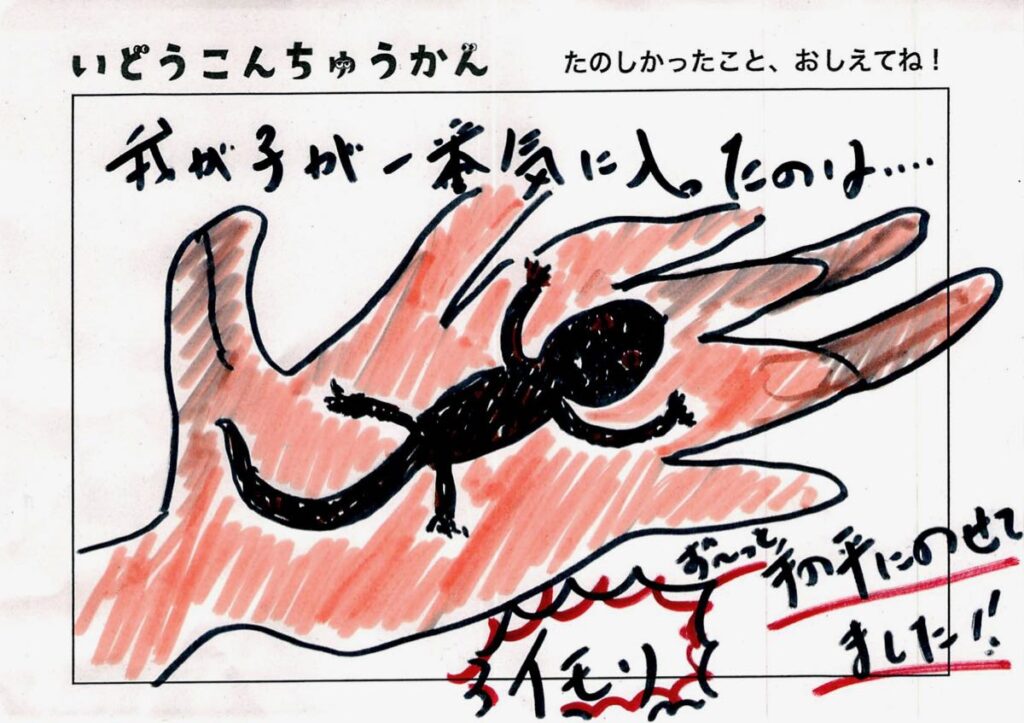 いどうこんちゅうかん
たのしかったこと、おしえてね！
我が子が一番気に入ったのは‥‥
ず〜っと手の平にのせて
ました!!
イモリ